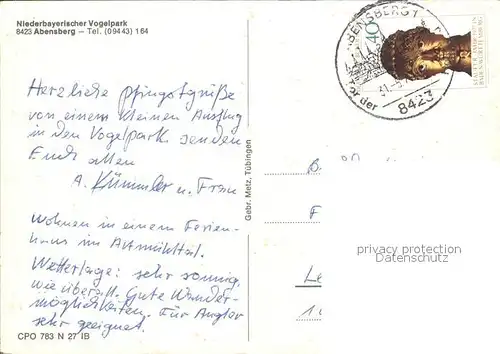 Niederbayerischer Vogelpark
8423 Abensberg – Tel. (09443) 164
Herzliche Pfingstgrüße
von einem kleinen Ausflug
in den Vogelpark senden
Euch allen
A. Kümmler u. Frau
wohnen in einem Ferien-
haus im Altmühltal.
Wetterlage: sehr sonnig,
wie überall. Gute Wander-
möglichkeiten. Für Angler
sehr geeignet.
CPO 783 N 27 IB
Gebr. Metz, Tübingen
ABENSBERG 1
vor der
8423
40
B
F
privacy protection
Datenschutz